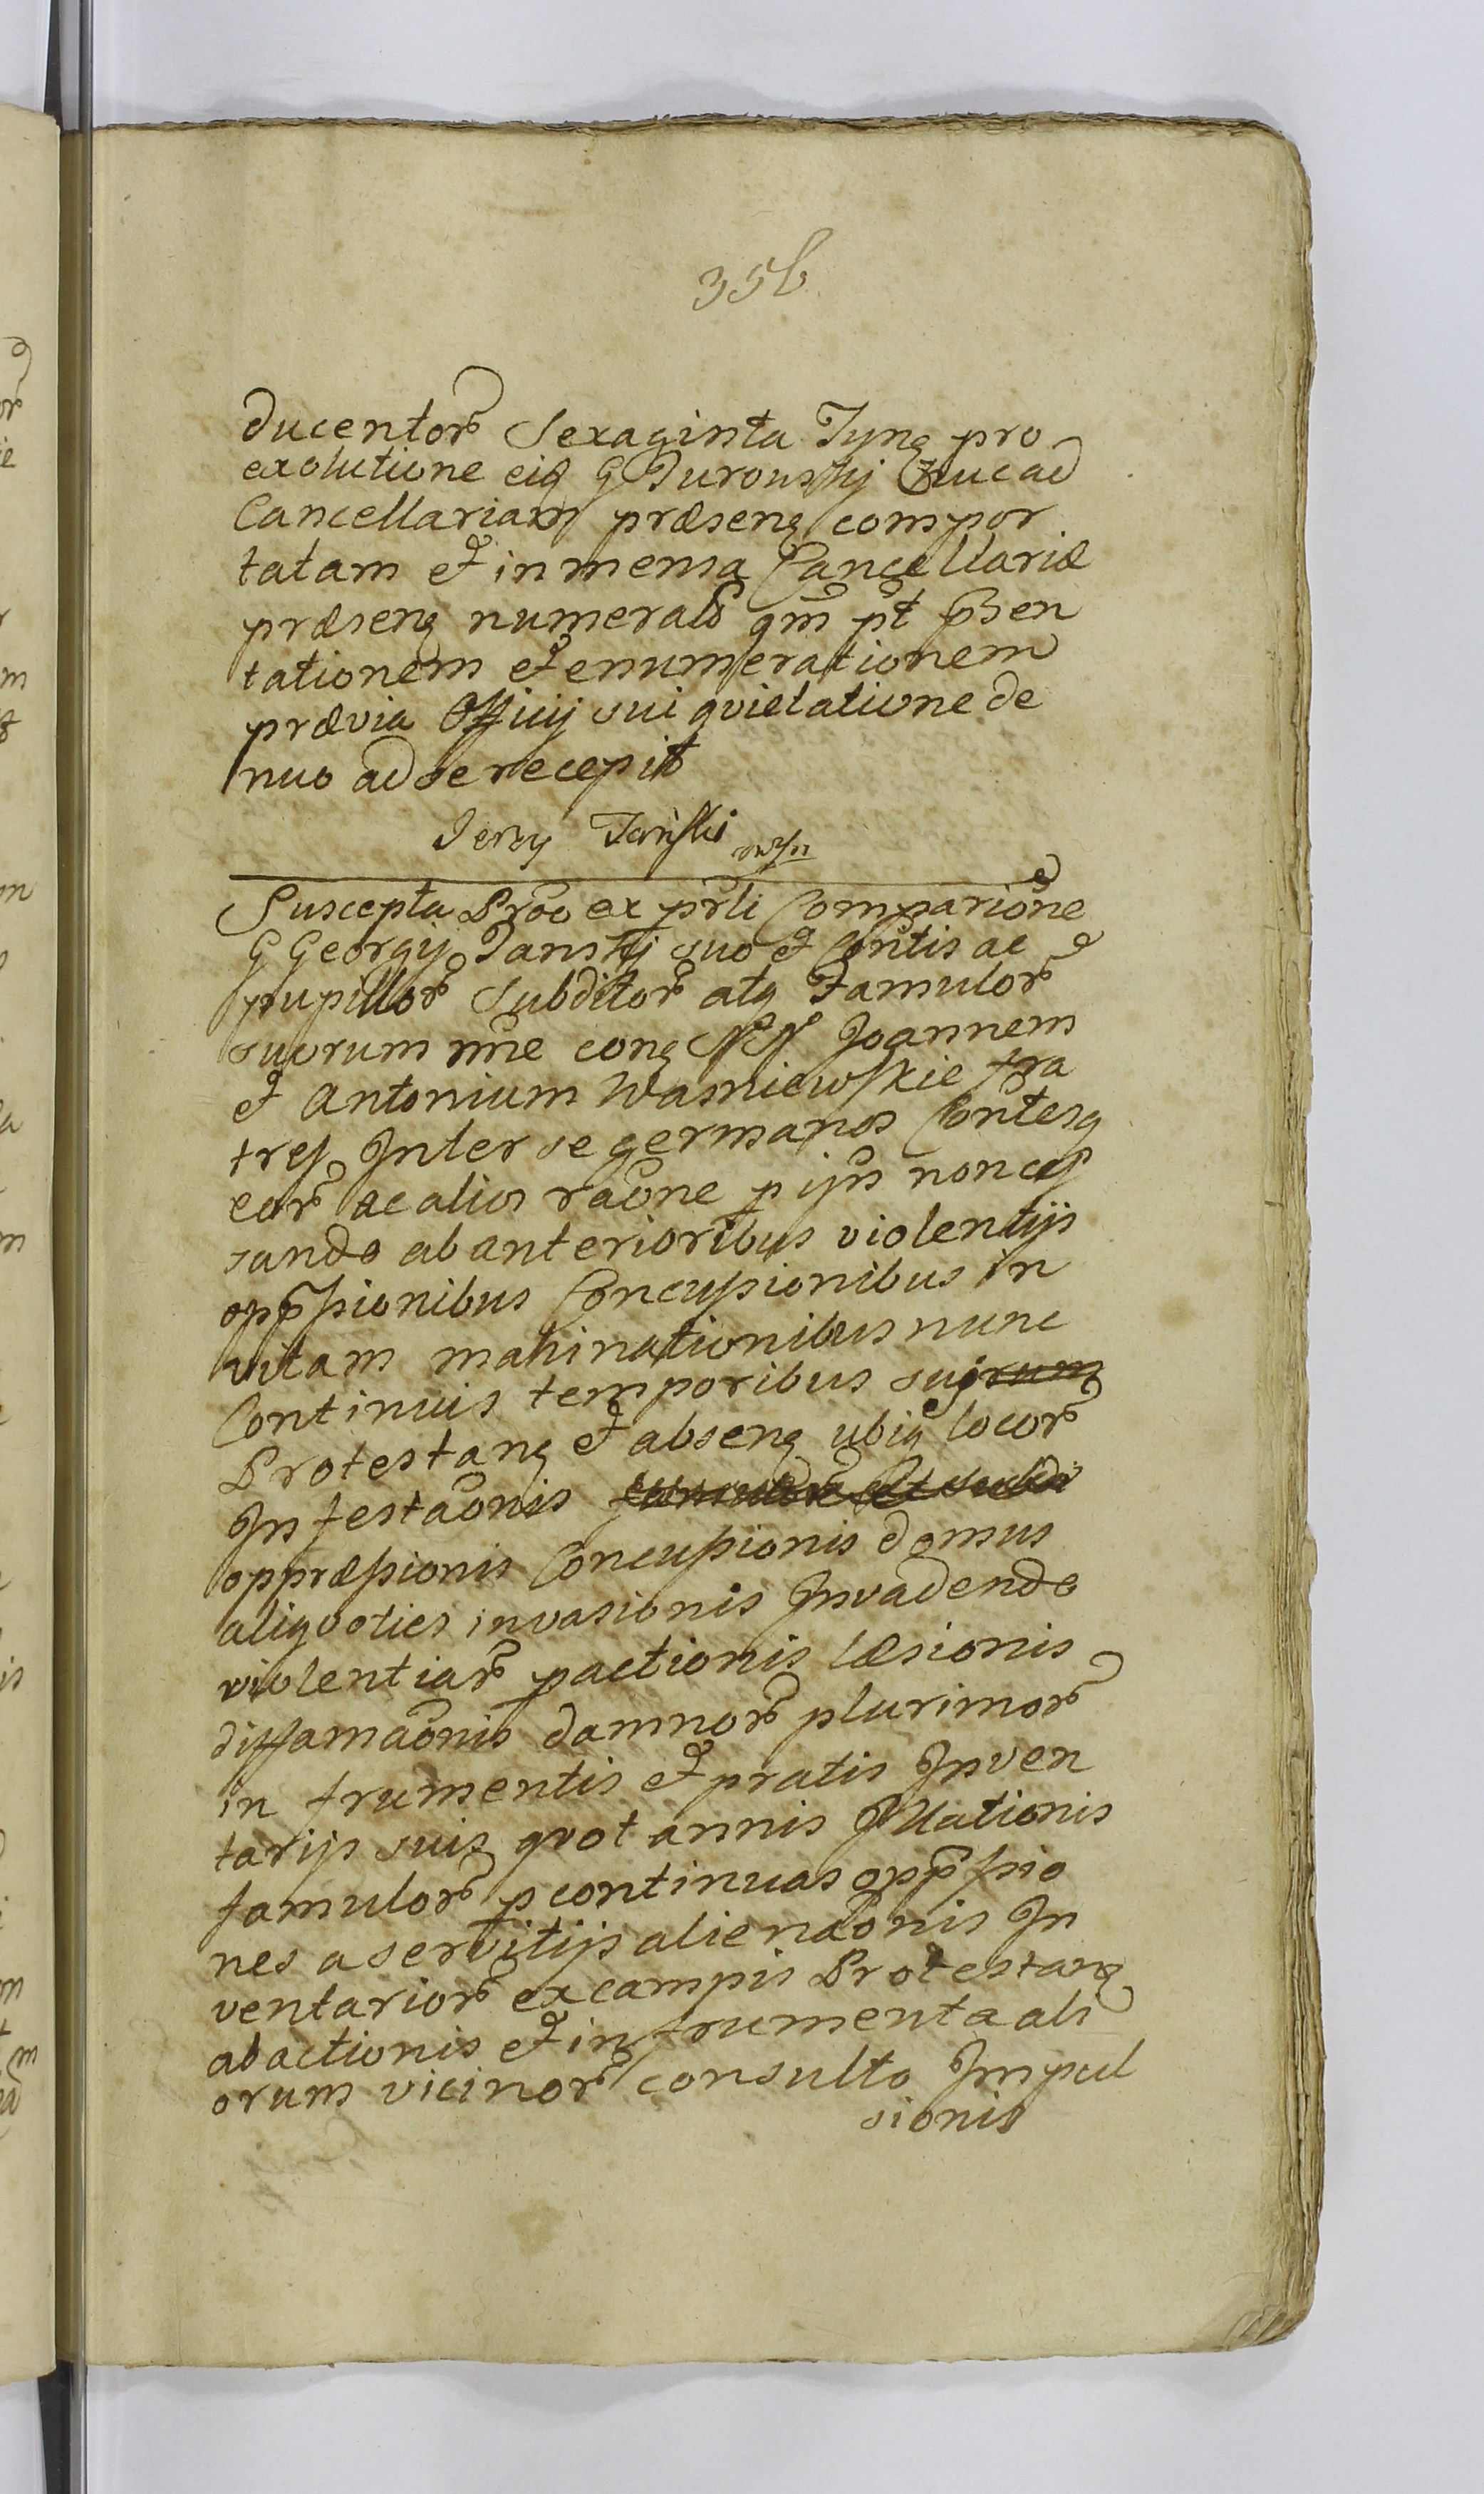 356
ducentor Sexaginta Tynq pro
exolutione eiq G Turonskj huc ad
Cancellariam præsenq compor
tatam et in mensa Cancellariæ
præsenq numerals qm pt psen
tationem et enumerationem
prævia Officij sui qvietatione de
nuo ad se recepit
Jerzy Tański mpp
Suscepta Prōo ex prli Comparīone
G Georgij Tanskj suo et Contis ac
pupillor Subditor atq Famulor
suorum nne conq NN Joannem
et Antonium Wasniewskie fra
tres Inter se germanos Contesq
eor ac alios raōne p ijs non ces
sando ab anterioribus violentijs
oppssionibus Concussionibus in
vitam mahinationibus nunc
Continuis temporibus sui
Protestanq et absenq ubiq locor
Infestaōnis
oppræssionis Concussionis domus
aliqvoties invasionis Invadendo
violentiar pactionis læsionis
diffamaōnis damnor plurimor
in frumentis et pratis Inven
tarijs suis qvot annis Illationis
famulor p continuas oppssio
nes a servitijs alienaōnis In
ventarior ex campis Protestanq
abactionis et in frumenta ali
orum vicinor consulto Impul
sionis